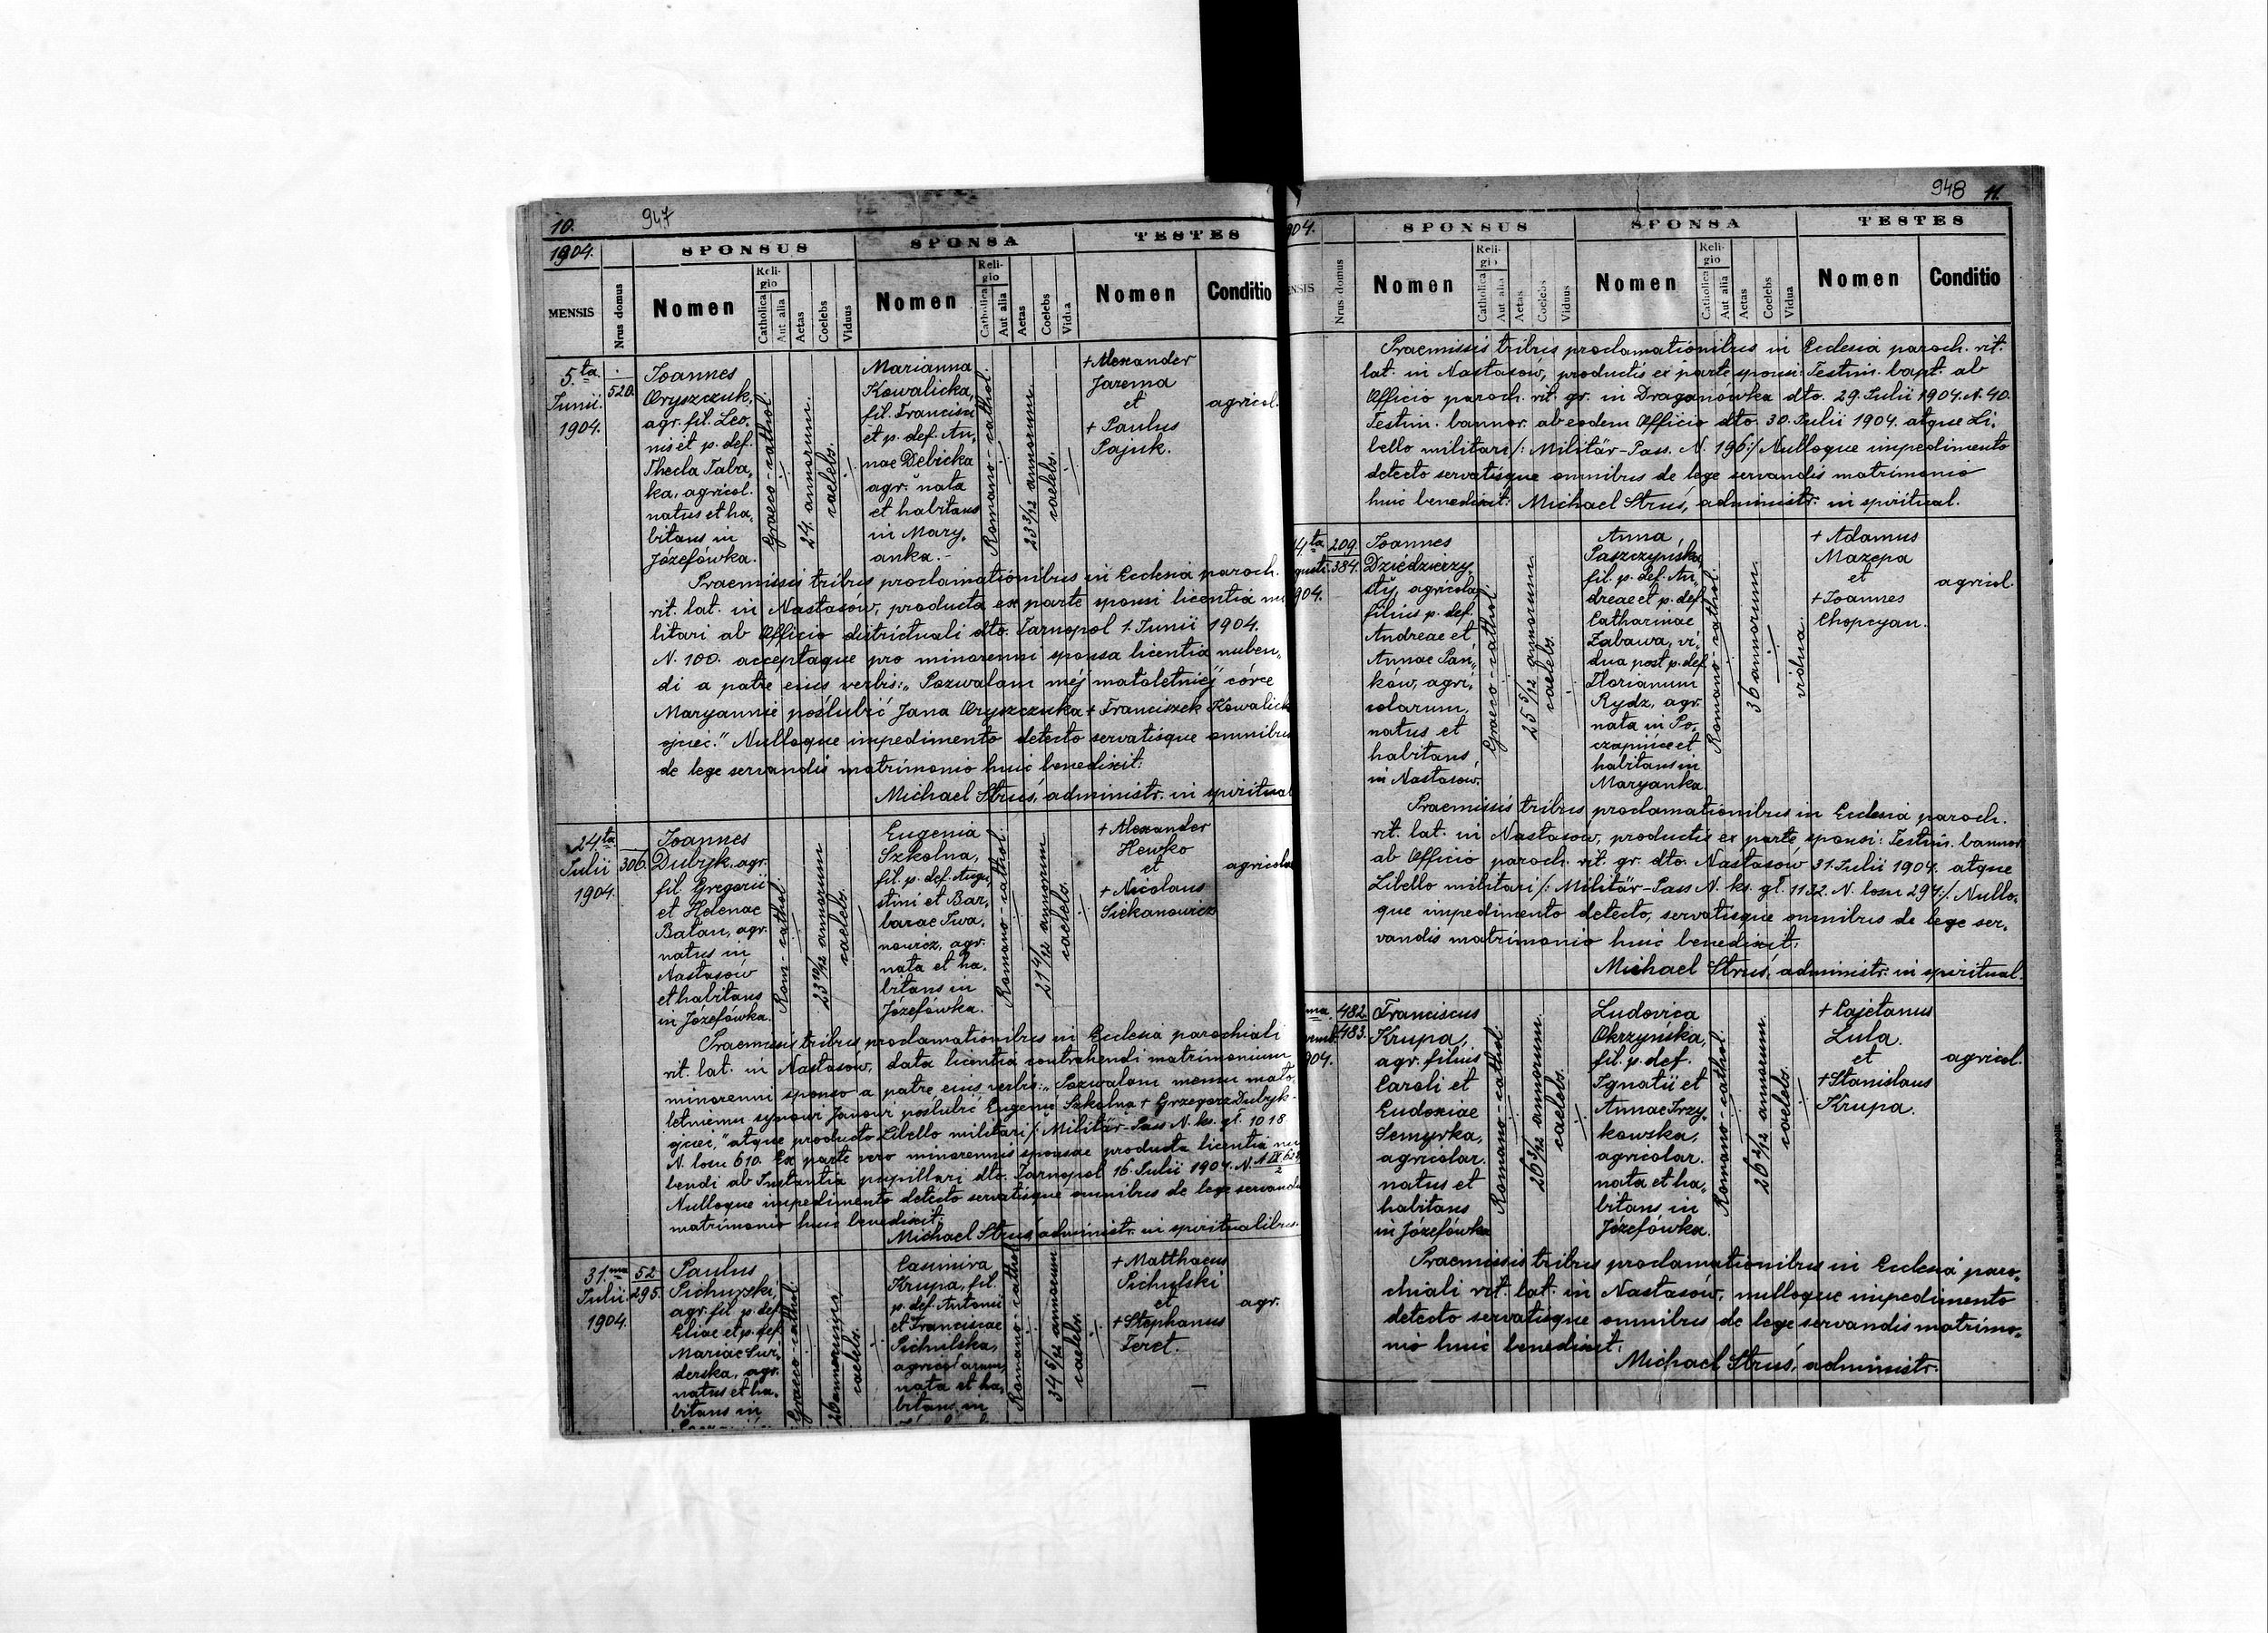 10. 947
1904.
SPONSUS SPONSA TESTES
MENSIS
Nrus domus
Nomen
Reli-
gio
Catholica
Aut alia
Aetas
Coelebs
Viduus
Nomen
Reli-
gio
Catholica
Aut alia
Aetas
Coelebs
Vidua
Nomen
Conditio
5.ta
Junii.
1904.
520.
Joannes
Oryszczuk,
agr. fil. Leo,
nis et p. def.
Thecla Taba,
ka, agricol.
natus et ha,
bitans in
Józefówka.
Graeco-cathol.
24. annorum.
caelebs.
Marianna
Kowalicka,
fil. Francisci
et p. def. An,
nae Debicka
agr. nata
et habitans
in Mary,
anka.-
Romano-cathol.
23 3/12 annorum
caelebs.
+ Alexander
Jarema
et
+ Paulus
Pajuk.
agricol.
Praemissis tribus proclamationibus in Ecclesia paroch.
rit. lat. in Nastasów, producta ex parte sponsi licentia mi
litari ab Officio districtuali dto. Tarnopol 1. Junii 1904.
N. 100. acceptaque pro minorenni sponsa licentia nuben,,
di a patre eius verbis: „Pozwalam mej małoletniej córce
Maryannie poślubić Jana Oryszczuka + Franciszek Kowalick
ojciec." Nulloque impedimento detecto servatisque omnibus
de lege servandis matrimonio huic benedixit:
Michael Struś, administr. in spiritual
24ta
Julii
1904.
306.
Joannes
Dubyk, agr.
fil. Gregorii
et Helenae
Batan, agr.
natus in
Nastasów
et habitans
in Józefówka.
Rom-cathol.
23 10/12 annorum
caelebs.
Eugenia
Szkolna,
fil. p. def. Augu,
stini et Bar,
barae Iwa,
nowicz, agr.
nata et ha,
bitans in
Józefówka.
Romano-cathol.
21 4/12 annorum
caelebs.
+ Alexander
Hewko
et
+ Nicolaus
Siekanowicz
agricola
Praemissis tribus proclamationibus in Ecclesia parochiali
rit. lat. in Nastasów, data licentia contrahendi matrimonium
minorenni sponso a patre eius verbis: „Pozwalam memu mało,
letniemu synowi Janowi poślubić Eugenię Szkolną + Grzegorz Dubyk-
ojciec," atque producto Libello militari /: Militär-Pass N. ks. gł. 1018
N. losu 610. Ex parte vero minorennis sponsae producta licentia nu
bendi ab Instantia pupillari dto. Tarnopol 16. Julii 1904. N.
Nulloque impedimento detecto servatisque omnibus de lege servand
matrimonio huic benedixit:
Michael Struś, administr. in spiritualibus.
31.ma
Julii.
1904.
52
295.
Paulus
Pichurski,
agr. fil. p. def.
Eliae et p. def
Mariae Sur,
derska, agr.
natus et ha,
bitans in
Graeco-cathol.
26 annorum
caelebs.
Casimira
Krupa, fil.
p. def. Antonii
et Franciscae
Pichulska,
agricolarum,
nata et ha,
bitans in
Romano-cathol.
34 5/12 annorum
caelebs.
+ Matthaeus
Pichulski
et
+ Stephanus
Feret.
agr.
948 11.
904.
SPONSUS SPONSA TESTES
ENSIS
Nrus domus
Nomen
Reli-
gio
Catholica
Aut alia
Aetas
Coelebs
Viduus
Nomen
Reli-
gio
Catholica
Aut alia
Aetas
Coelebs
Vidua
Nomen
Conditio
Praemissis tribus proclamationibus in Ecclesia paroch. rit.
lat. in Nastasów, productis ex parte sponsi: Testim. bapt. ab
Officio paroch. rit. gr. in Draganówka dto. 29. Julii 1904. N. 40.
Testim. bannor. ab eodem Officio dto. 30. Julii 1904. atque Li,
bello militari /: Militär-Pass. N. 196:/ Nulloque impedimento
detecto servatisque omnibus de lege servandis matrimonio
huic benedixit: Michael Struś, administr. in spiritual.
4.ta
gusti.
904.
209.
384.
Joannes
Dziedzierzy,
sty, agricola
filius p. def.
Andreae et
Annae Pań,
ków, agri,
colarum,
natus et
habitans
in Nastasów.
Graeco-cathol.
25 5/12 annorum
caelebs.
Anna
Paszczyńska,
fil. p. def. An,
dreae et p. def
Catharinae
Zabawa, vi,
dua post p. def
Florianum
Rydz, agr.
nata in Po,
czapińce et
habitans in
Maryanka.
Romano-cathol.
36 annorum.
vidua.
+ Adamus
Mazepa
et
+ Joannes
Chopcyan.
agricol.
Praemissis tribus proclamationibus in Ecclesia paroch.
rit. lat. in Nastasów, productis ex parte sponsi: Testim. bannor
ab Officio paroch. rit. gr. dto. Nastasów 31. Julii 1904. atque
Libello militari /: Militär-Pass N. ks. gł. 1132. N. losu 297:/. Nullo,
que impedimento detecto, servatisque omnibus de lege ser,
vandis matrimonio huic benedixit:
Michael Struś, administr. in spiritual.
ma.
904.
482.
483.
Franciscus
Krupa,
agr. filius
Caroli et
Eudoxiae
Semyrka,
agricolar.
natus et
habitans
in Józefówka
Romano-cathol.
26 3/12 annorum
caelebs.
Ludovica
Okrzyńska,
fil. p. def.
Ignatii et
Annae Trzy,
kowska,
agricolar.
nata et ha,
bitans in
Józefówka.
Romano-cathol.
26 2/12 annorum
caelebs.
+ Cajetanus
Lula.
et
+ Stanislaus
Krupa.
agricol.
Praemissis tribus proclamationibus in Ecclesia paro,
chiali rit. lat. in Nastasów, nulloque impedimento
detecto servatisque omnibus de lege servandis matrimo,
nio huic benedixit:
Michael Struś, administr.